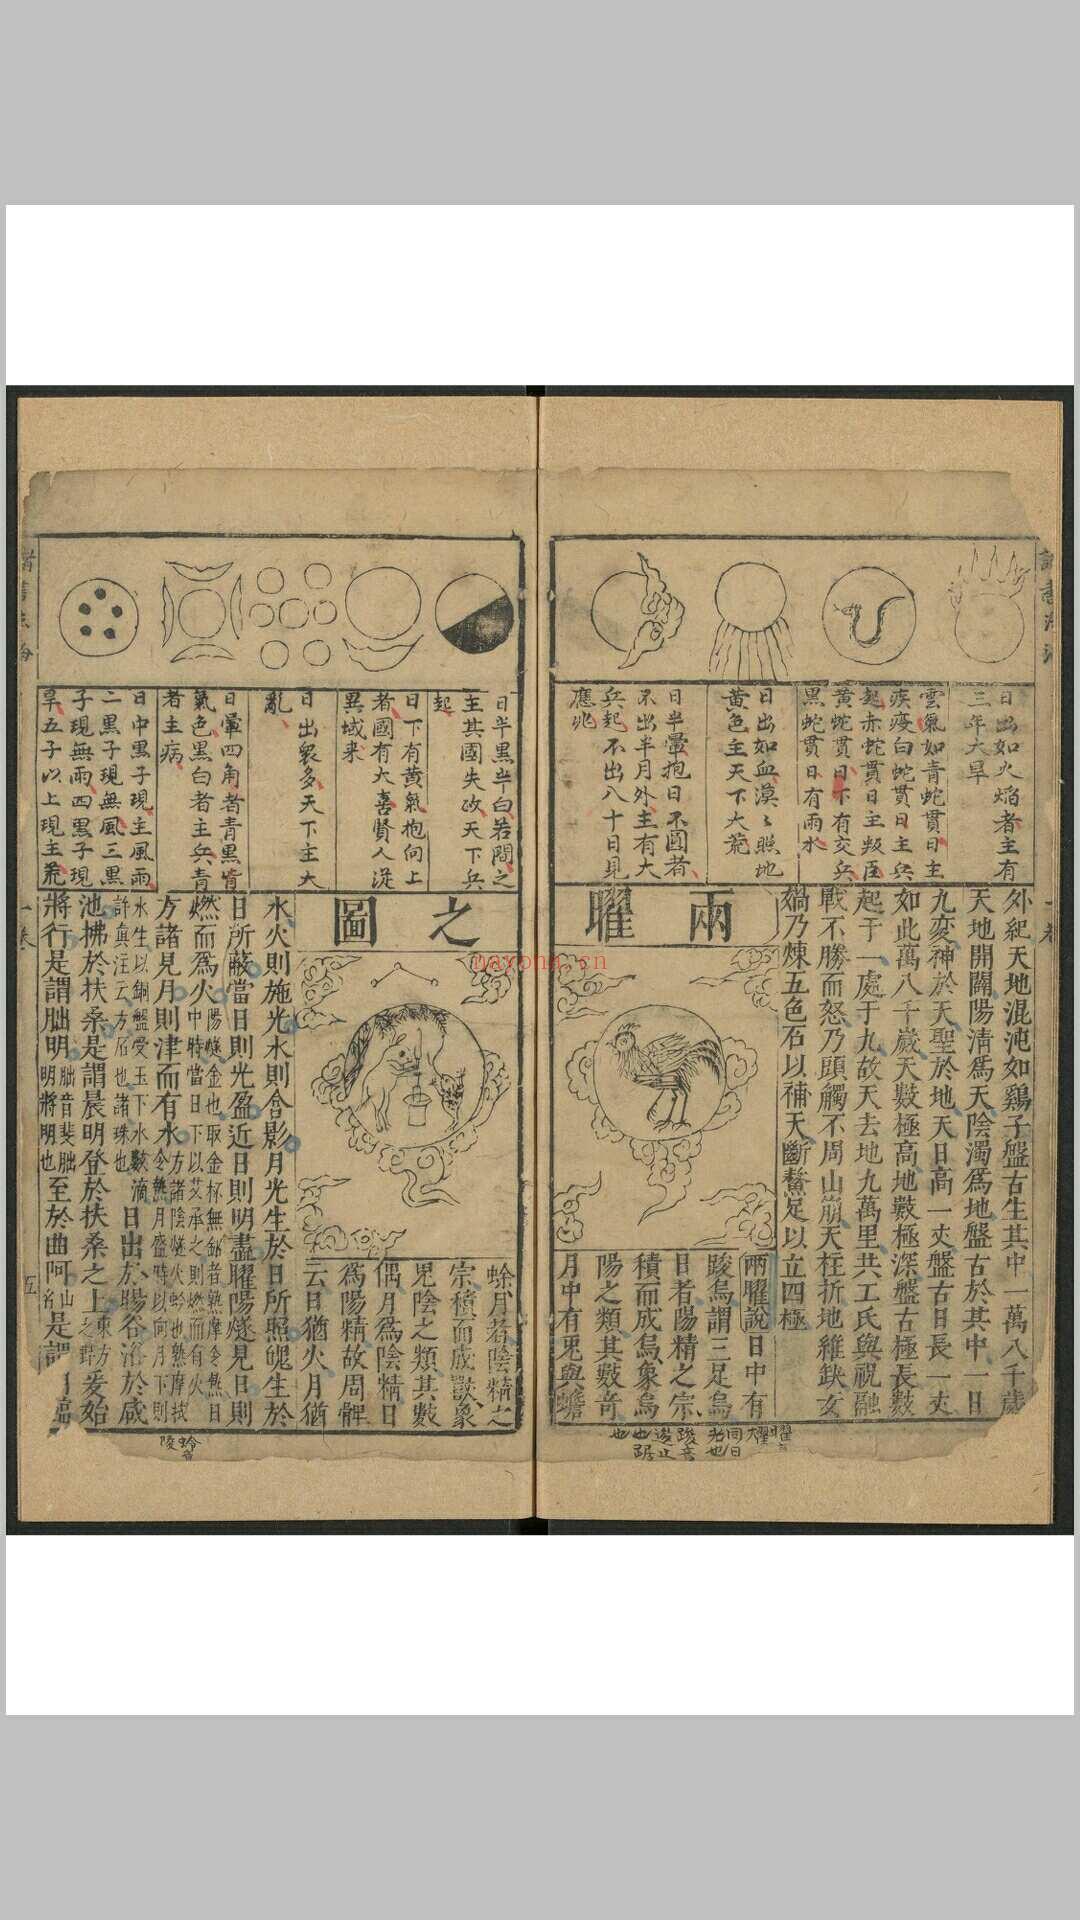 日出如火焰者主有
三年大旱
雲氣如青蛇貫日主
疾疫白蛇貫日主兵
起赤蛇貫日主叛臣
黃蛇貫日下有交兵
黑蛇貫日有雨水
日出如血漠〻照地
黃色主天下大荒
日半暈抱日不圓者
不出半月外主有大
兵起不出八十日見
應兆
外紀天地混沌如鷄子盤古生其中一萬八千歲
天地開闢陽清爲天陰濁爲地盤古於其中一日
九変神於天聖於地天日高一丈盤古日長一丈
如此萬八千嵗天數極高地數極深盤古極長數
起于一處于九故天去地九萬里共工氏與祝融
戰不勝而怒乃頭觸不周山崩天柱折地維缺女
媧乃煉五色石以補天斷鰲足以立四極
兩曜
兩曜說日中有
踆烏謂三足烏
日者陽精之宗
積而成烏象烏
陽之類其數竒
月中有兎與蟾
日半黑半白若問之
主其國失政天下兵
起
日下有黄氣抱向上
者國有大喜賢人從
異域来
日出衆多天下主大
亂
日暈四角者青黑肯
氣色黑白者主兵青
者主病
日中黑子現主風雨
二黑子現無風三黑
子現無雨四黑子現
旱五子以上現主荒
之圖
蜍月者陰精之
宗積而成獸象
兎陰之類其數
偶月爲陰精日
爲陽精故周髀
云日猶火月猶
水火則施光水則含影月光生於日所照魄生於
日所蔽當日則光盈近日則明盡曜陽燧見日則
燃而爲火陽燧金也取金杯無緣者熟摩令熱日
中時當日下以艾承之則燃而有火
方諸見月則津而有水方諸陰燧火蛤也熟摩拭
令熱月盛時以向月下則
水生以銅盤受玉下水數滴
許真注云方石也諸珠也
日出於暘谷浴於咸
池拂於扶桑是謂晨明登於扶桑之上東方
之野
爰始
將行是謂朏明朏音斐朏
明將明也
至於曲阿山
名
是謂